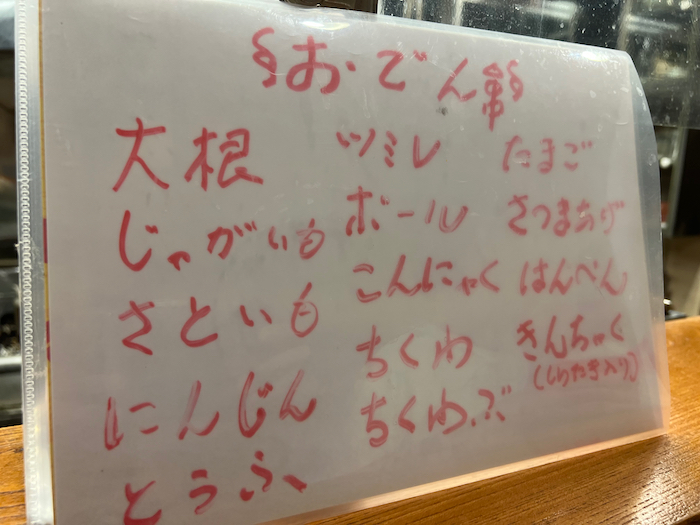 §おでん§
大根
じゃがいも
さといも
にんじん
とうふ
ツミレ
ボール
こんにゃく
ちくわ
ちくわぶ
たまご
さつまあげ
はんぺん
きんちゃく
(しらたき入り)